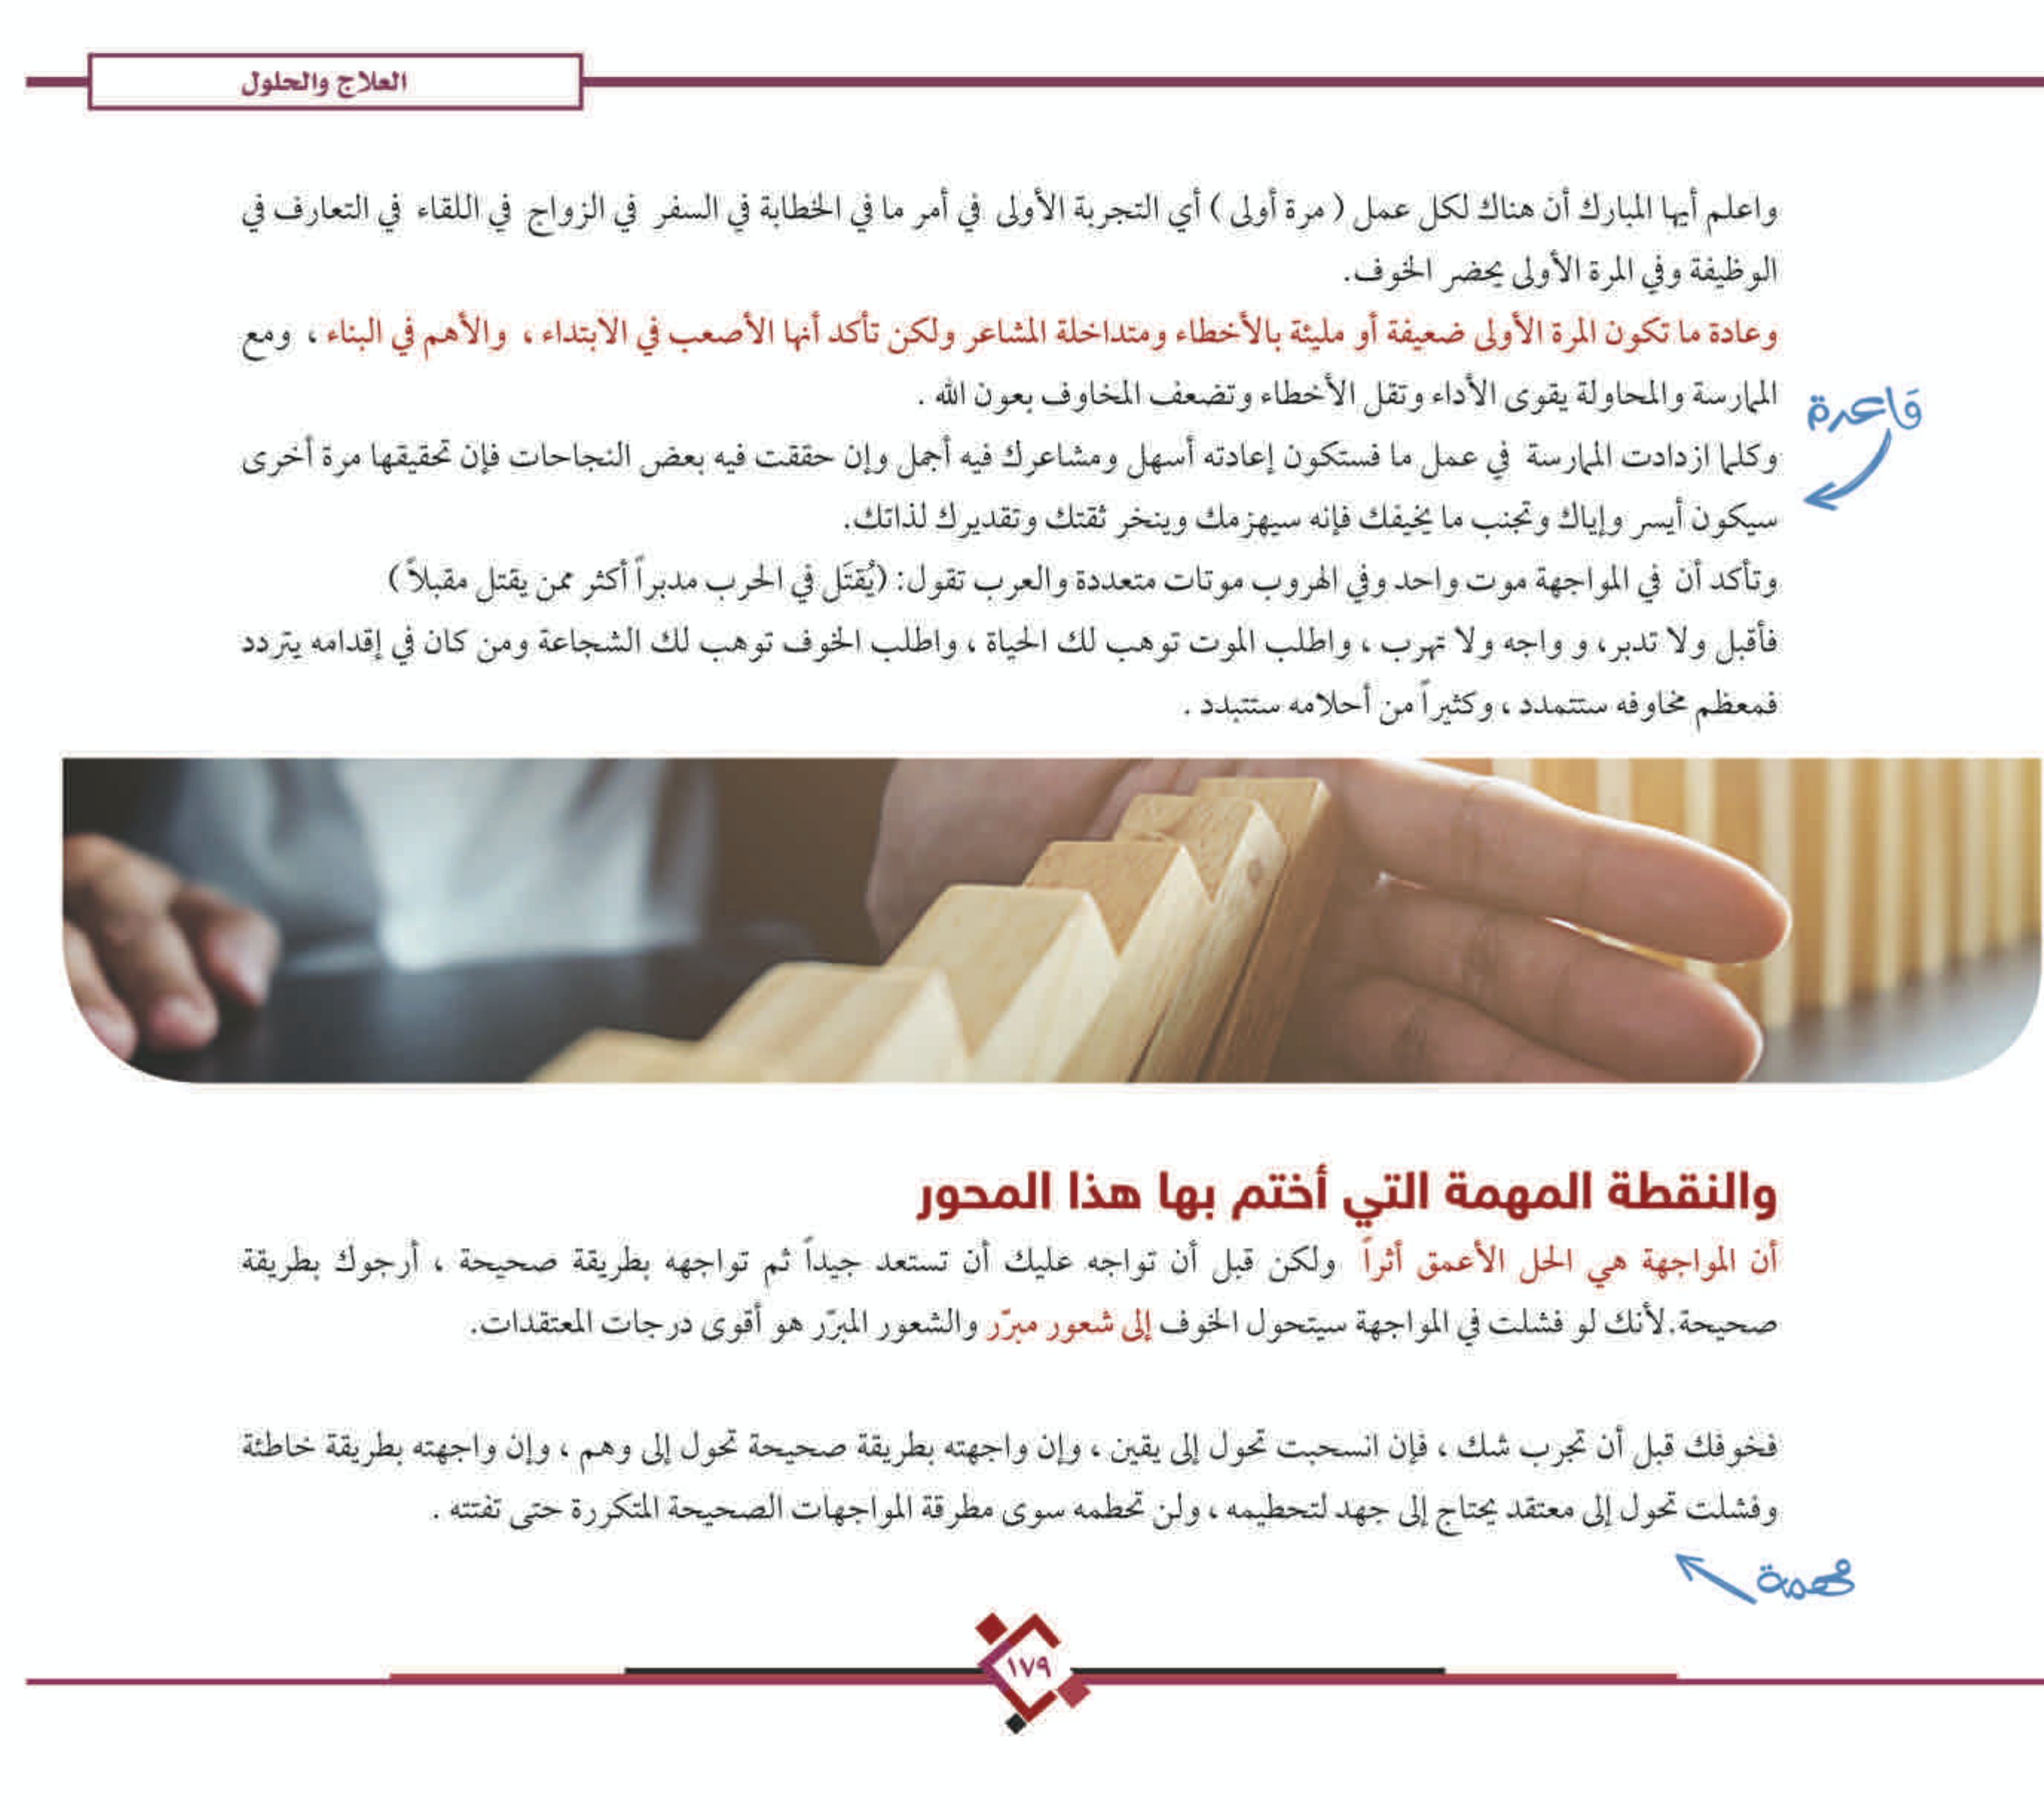 العلاج والحلول
واعلم أيها المبارك أن هناك لكل عمل ( مرة أولى ) أي التجربة الأولى في أمر ما في الخطابة في السفر في الزواج في اللقاء في التعارف في
الوظيفة وفي المرة الأولى يحضر الخوف.
وعادة ما تكون المرة الأولى ضعيفة أو مليئة بالأخطاء ومتداخلة المشاعر ولكن تأكد أنها الأصعب في الابتداء ، والأهم في البناء ، ومع
الممارسة والمحاولة يقوى الأداء وتقل الأخطاء وتضعف المخاوف بعون الله .
قاعدة
وكلما ازدادت الممارسة في عمل ما فستكون إعادته أسهل ومشاعرك فيه أجمل وإن حققت فيه بعض النجاحات فإن تحقيقها مرة أخرى
سيكون أيسر وإياك وتجنب ما يخيفك فإنه سيهزمك وينخر ثقتك وتقديرك لذاتك.
وتأكد أن في المواجهة موت واحد وفي الهروب موتات متعددة والعرب تقول: (يُقتَل في الحرب مدبراً أكثر ممن يقتل مقبلاً )
فأقبل ولا تدبر، و واجه ولا تهرب ، واطلب الموت توهب لك الحياة ، واطلب الخوف توهب لك الشجاعة ومن كان في إقدامه يتردد
فمعظم مخاوفه ستتمدد ، وكثيراً من أحلامه ستتبدد .
والنقطة المهمة التي أختم بها هذا المحور
أن المواجهة هي الحل الأعمق أثراً ولكن قبل أن تواجه عليك أن تستعد جيداً ثم تواجهه بطريقة صحيحة ، أرجوك بطريقة
صحيحة.لأنك لو فشلت في المواجهة سيتحول الخوف إلى شعور مبرّر والشعور المبرّر هو أقوى درجات المعتقدات.
فخوفك قبل أن تجرب شك ، فإن انسحبت تحول إلى يقين ، وإن واجهته بطريقة صحيحة تحول إلى وهم ، وإن واجهته بطريقة خاطئة
وفشلت تحول إلى معتقد يحتاج إلى جهد لتحطيمه ، ولن تحطمه سوى مطرقة المواجهات الصحيحة المتكررة حتى تفتته .
مهمة
١٧٩